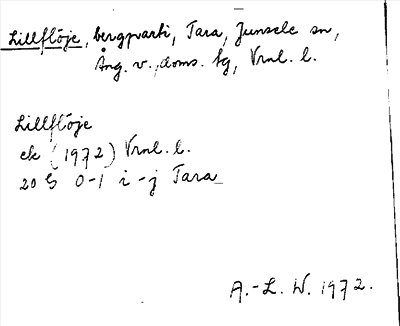 Lillflöje, bergparti, Tara, Junsele sn,
Ång. v., doms. tg, Vrnl. l.
Lillflöje
ek (1972) Vrnl. l.
20 G 0-1 i-j Tara
A.-L. W. 1972.